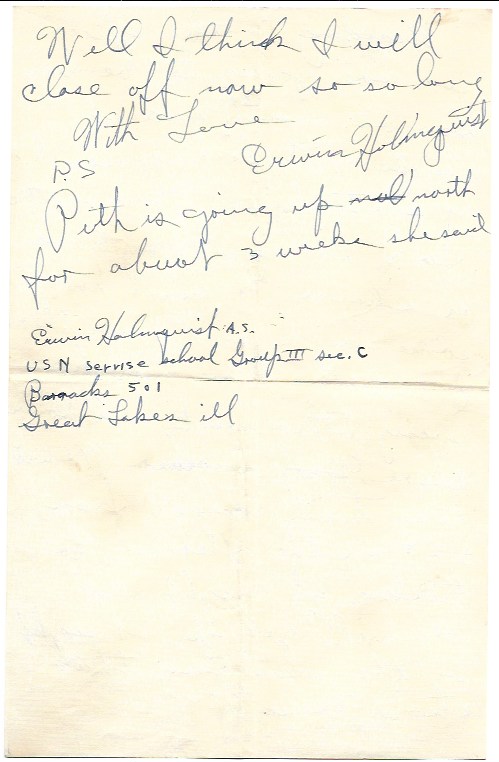 Well I think I will
close off now so so long
With Love
Erwin Holmquist
P.S
Ruth is going up north
for about 3 weeks she said
Erwin Holmquist A.S.
USN servise school Group III sec. C
Barracks 501
Great Lakes ill